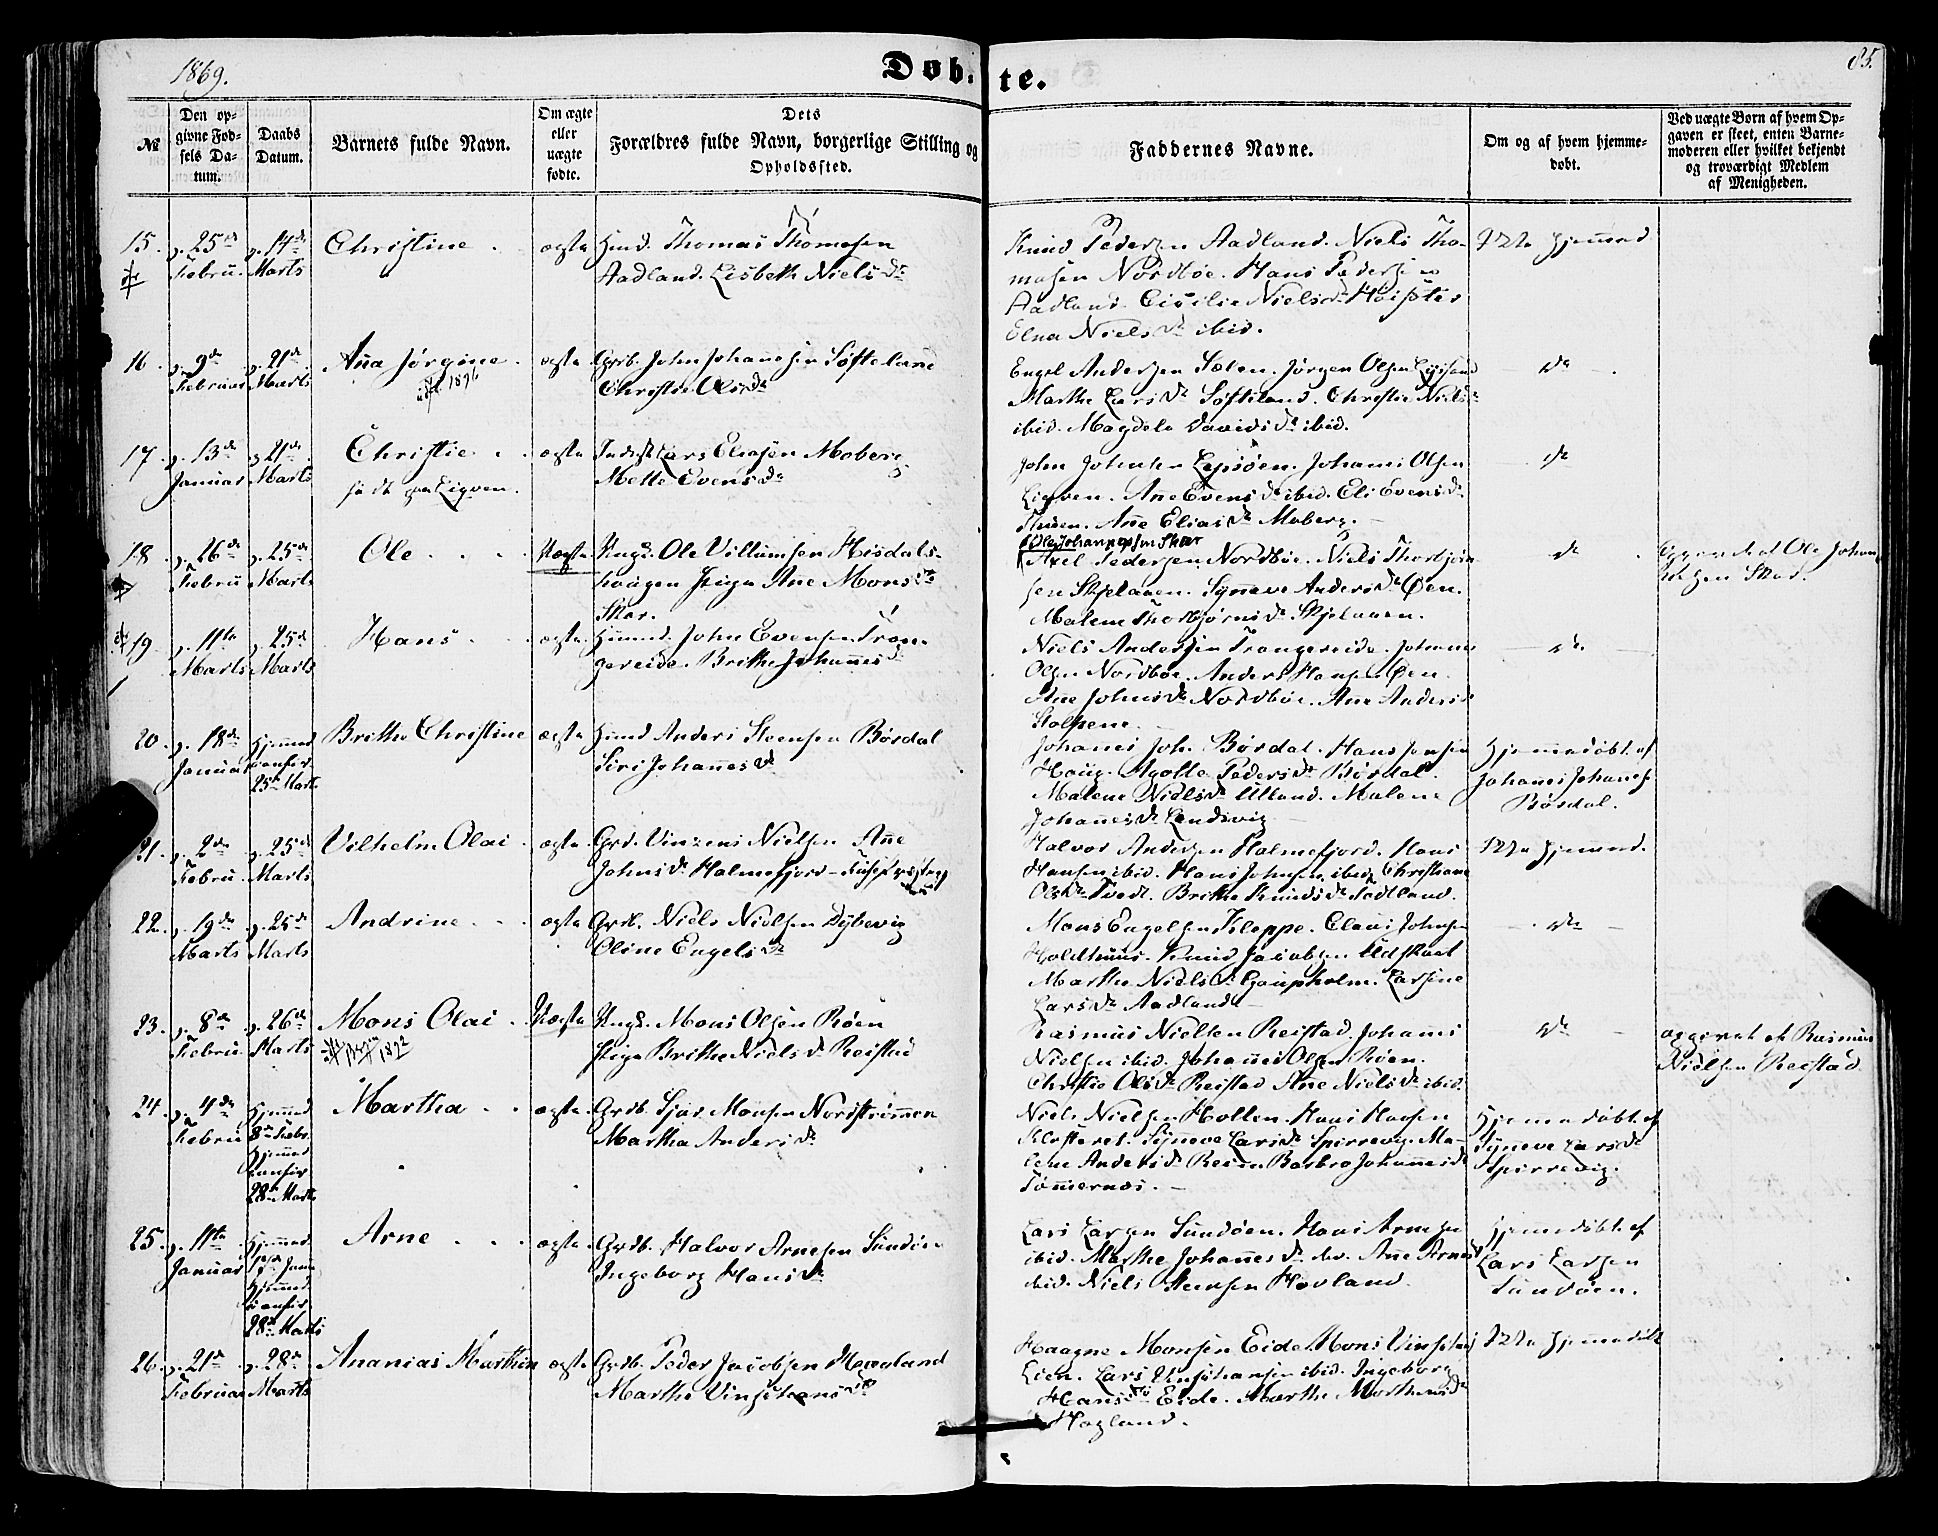 1869.
Døb-
te.
85.
№
Den op-
givne Fød-
sels Da-
tum.
Daabs
Datum.
Barnets fulde Navn.
Om ægte
eller
uægte
fødte.
Dets
Forældres fulde Navn, borgerlige Stilling og
Opholdssted.
Faddernes Navne.
Om og af hvem hjemme-
døbt.
Ved uægte Børn af hvem Op-
gaven er skeet, enten Barne-
moderen eller hvilket bekjendt
og troværdigt Medlem
af Menigheden.
15. 25de Febru. 14de Marts
Christine
ægte
Huusm. Thomas Thomasen
Aadland. Lisbeth Nielsdr
Knud Pedersen Aadland. Niels Tho-
masen Nordbøe. Hans Pedersen
Aadland. Cicilie Nielsdr
Elna Nielsdr ibid.
Ikke hjemmed
16. 9de Februar 21de Marts
Aña Jørgine
1896
ægte
Grdb. John Johannesen Søfteland
Christie Olsdr
Engel Andersen Sælen. Jørgen Olsen
Marthe Larsdr Søfteland. Christie Nielsdr
ibid. Magdele Davidsdr ibid.
do
17. 13de Januar 21de Marts
Christie
født paa Ligven.
ægte
Inderst Lars Eliasen Moberg
Mette Evensdr
John Johnsen Lepsøen. Johanes Olsen
Ligven. Añe Evensdr ibid. Eli Evensdr
Añe Eliasdr Moberg.
do
18. 26de Febru 25de Marts
Ole
Uægte
Ungk. Ole Villumsen Hisdals-
haugen Pige Ane Monsdr
Skar.
Ole Johannessen Skar
Axel Pedersen Nordbøe. Niels Thorbjørn
sen Skjelaaen. Synneve Andersdr Øen.
Malene Thorbjørnsdr Skjelaaen.
do
Opgivet af Ole Johan
nesen Skar.
19. 11te Marts 25de Marts
Hans
ægte
Huusmd. John Evensen Tran-
gereide. Brithe Johannesdr
Niels Andersen Trangereide. Johanes
Olsen Nordbøe. Anders Hansen Øen.
Ane Johnsdr Nordbøe. Ane Andersdr
Stolpene.
do
20. 18de Januar
hjemmed
confir
25de Marts
Brithe Christine
ægte
Huusmd Anders Steensen Børdal
Siri Johañesdr
Johañes Joh. Børdal. Hans Jensen
Haug. Agothe Pedersdr Børdal.
Malene Nielsdr Ulland. Malene
Johañesdr Lundevig
Hjemmedøbt af
Johañes Johanes
Børdal.
21. 2den Febru. 25de Marts
Vilhelm Olai
ægte
Grd. Vinzens Nielsen Añe
Johnsdr Halmefjord
Halvor Andersen Halmefjord. Hans
Hansen ibid. Hans Johnsen ibid. Christiane
Olsdr Tvedt. Brithe Knudsdr Sædland.
Ikke hjemmed.
22. 19de Marts 25de Marts
Andrine
ægte
Grdb. Niels Nielsen Dybevig
Oline Engelsdr
Mons Engelsen Kleppe. Claus Johnsen
Holdhuus. Knud Jacobsen Udskaat
Marthe Nielsdr Gaupholm. Larsine
Larsdr Aadland
do
23. 8de Febru. 26de Marts
Mons Olai
1892
Uægte
Ungk. Mons Olsen Røen
Pige Brithe Nielsdr Reistad
Rasmus Nielsen Reistad. Johañes
Nielsen ibid. Johañes Olsen Røen.
Christie Olsdr Reistad Ane Nielsdr ibid.
do
opgivet af Rasmus
Nielsen Reistad
24. 4de Febru
hjemmed
8de Febr.
hjemmed
confir
28de Marts
Martha
ægte
Grdb. Sjur Monsen Nordstrømmen
Martha Andersdr
Niels Nielsen Hollen. Hans Hansen
Klosteret. Synneve Larsdr Spirrevig. Ma-
lene Andersdr Røen. Barbro Johañesdr
Tømmernæs.
Hjemmedøbt af
Synneve Larsdr
Spirrevig.
25. 11te Januar
hjemmed
Janu
hjemmed
confir
28de Marts
Arne
ægte
Grdb. Halvor Arnesen Sundøen
Ingeborg Hansdr
Lars Larsen Sundøen. Hans Arnesen
ibid. Marthe Johañesdr ibid. Añe Arnesdr
ibid. Niels Steensen Hovland.
Hjemmedøbt af
Lars Larsen
Sundøen.
26. 21de Februar 28de Marts
Ananias Marthin
ægte
Grdb. Peder Jacobsen Hagland
Marthe Vinsjansdr
Haagne Monsen Eide. Mons
Lien. Lars ibid. Ingeborg
Hansdr Eide. Marthe Mathiasdr
Hagland.
Ikke hjemmedøbt